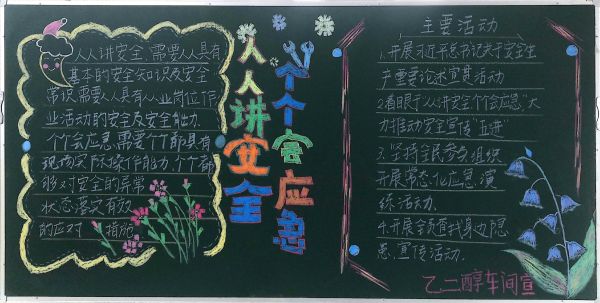 人人讲安全,需要人人具有
基本的安全知识及安全
常识,需要人人具有从业岗位作
业活动的安全及安全能力.
个个会应急,需要个个都具有
现场实际操作能力,个个都
够对安全的异常
状态落实有效
的应对措施
人人讲安全
个个会应急
主要活动
1.开展习近平总书记关于安全生
产重要论述宣贯活动
2.着眼于"人人讲安全个个会应急"大
力推动安全宣传"五进"
3.坚持全民参与,组织
开展常态化应急演
练活动.
4.开展全员查找身边隐
患,宣传活动.
乙二醇车间宣